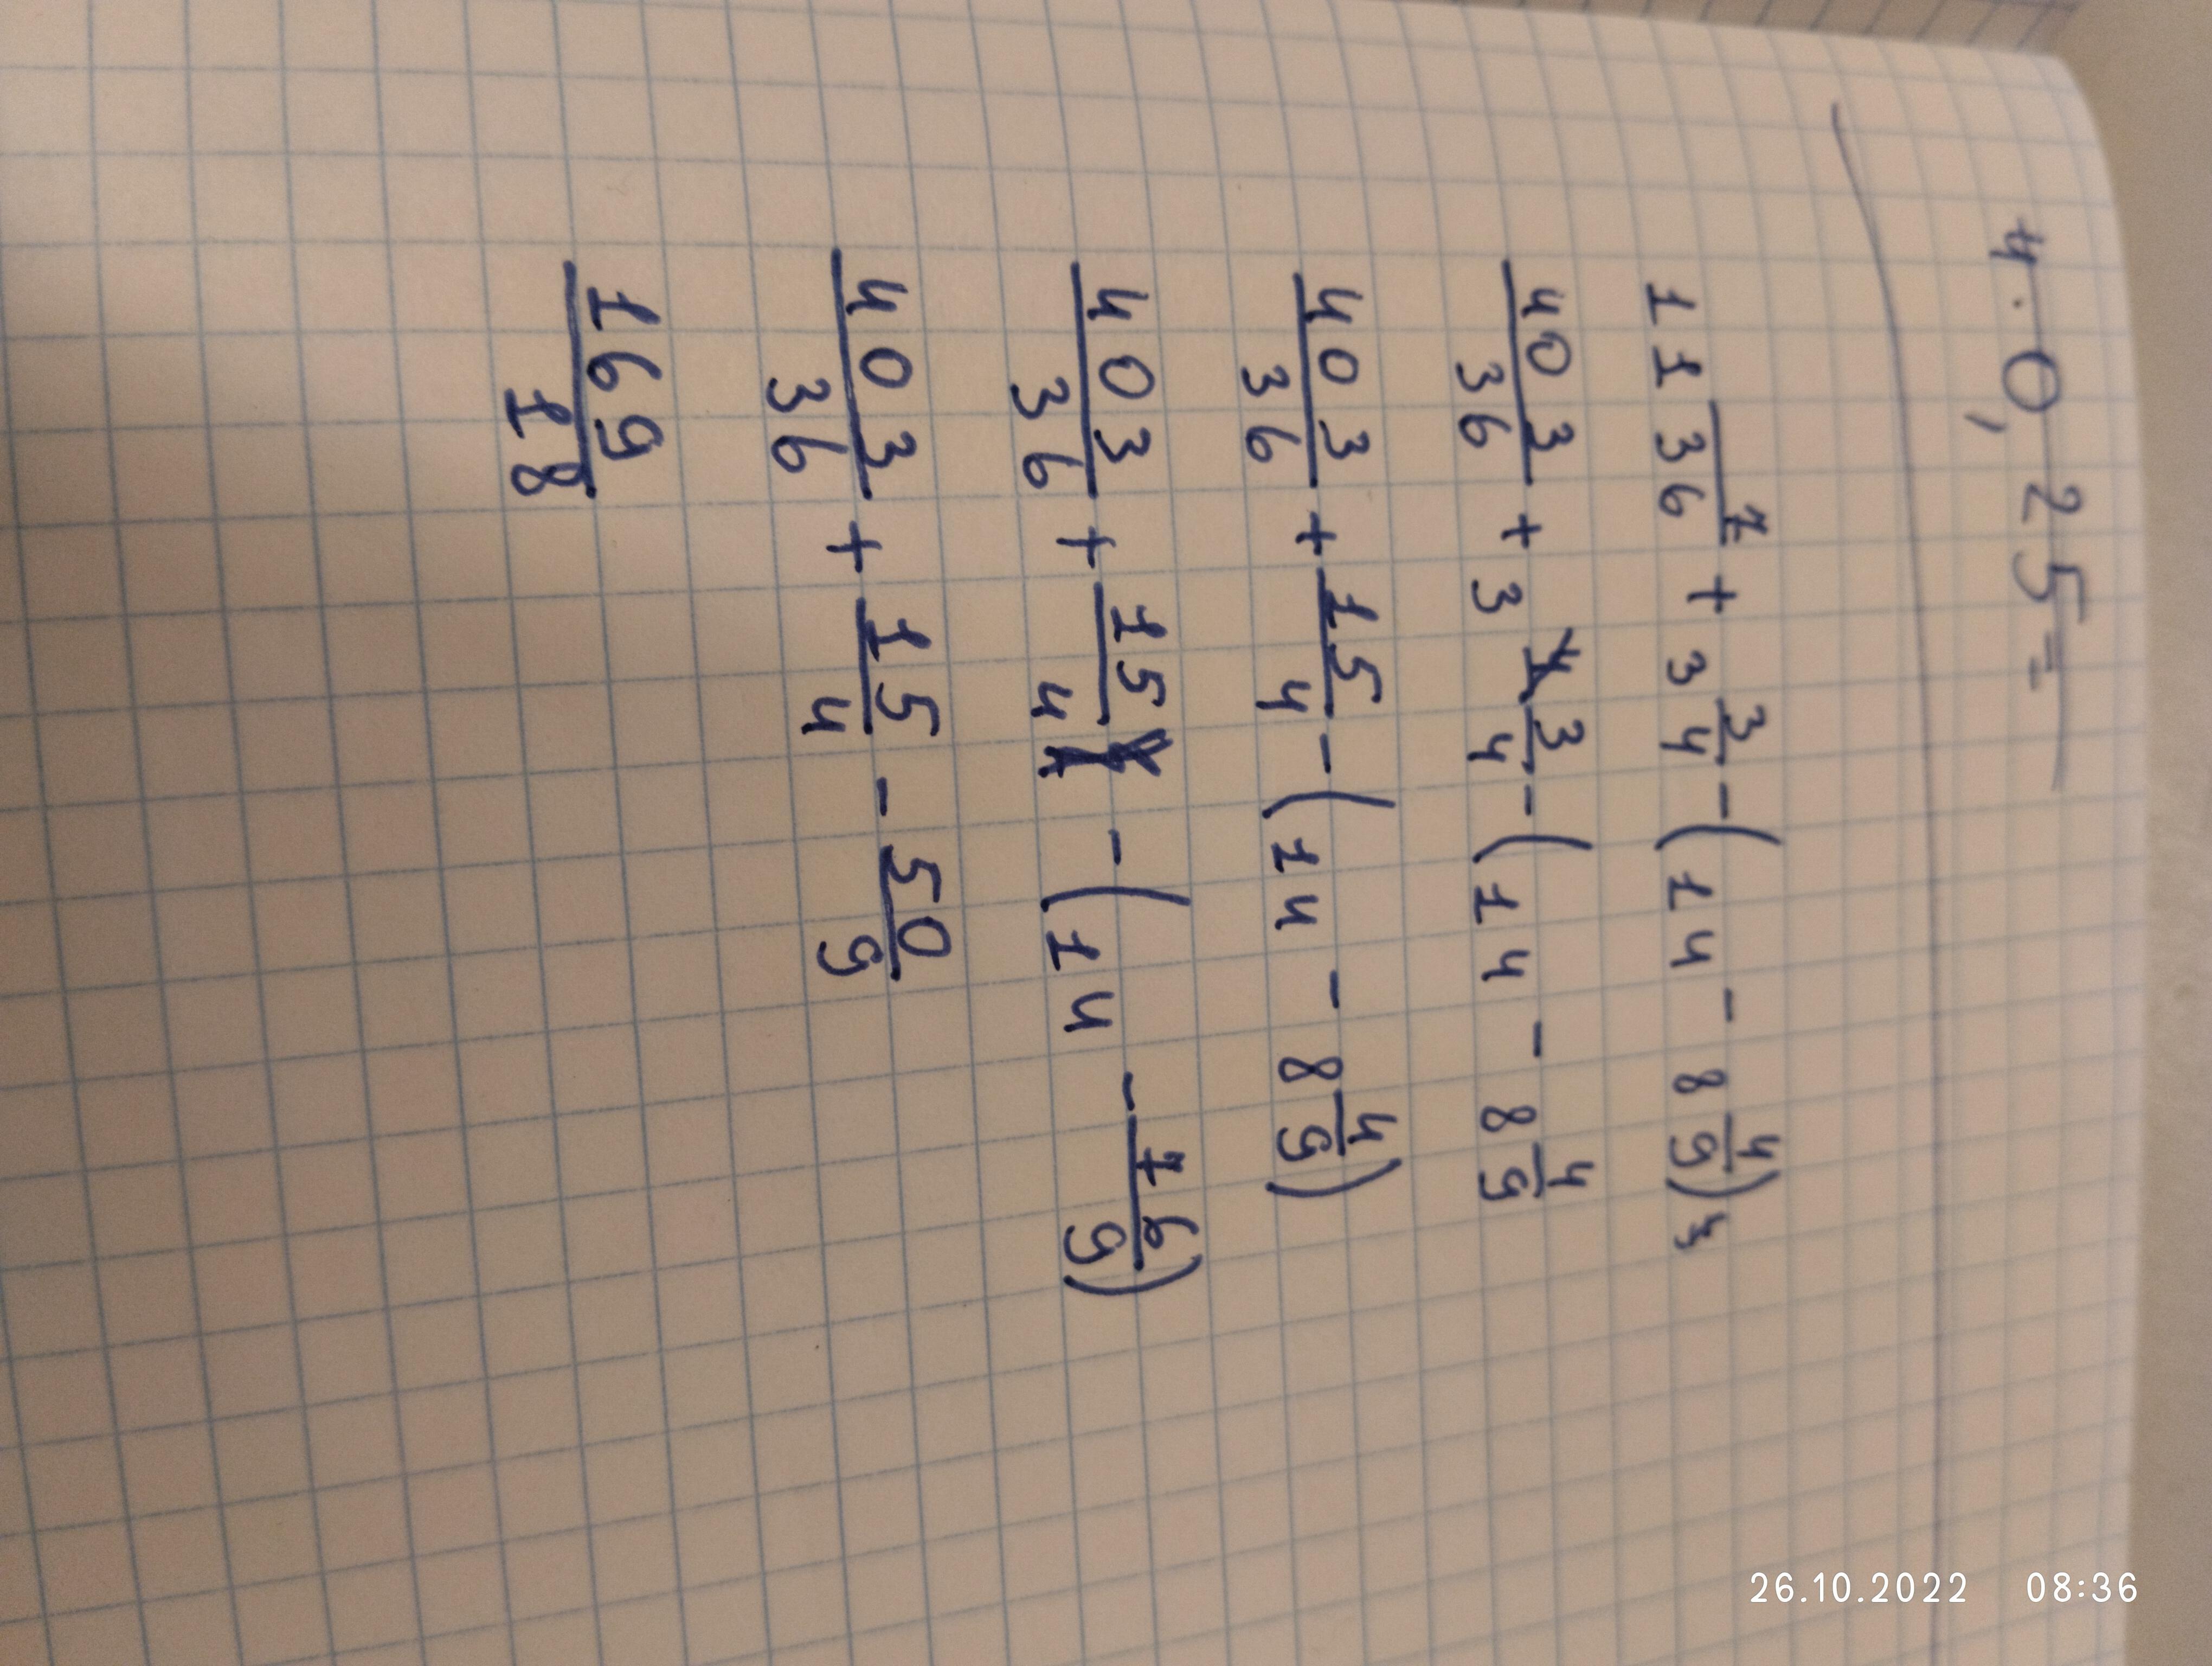 4 · 0,25 =
11 7/36 + 3 3/4 - (14 - 8 4/9)
403/36 + 3 3/4 - (14 - 8 4/9
403/36 + 15/4 - (14 - 8 4/9)
403/36 + 15/4 - (14 - 76/9)
403/36 + 15/4 - 50/9
169/18
26.10.2022 08:36